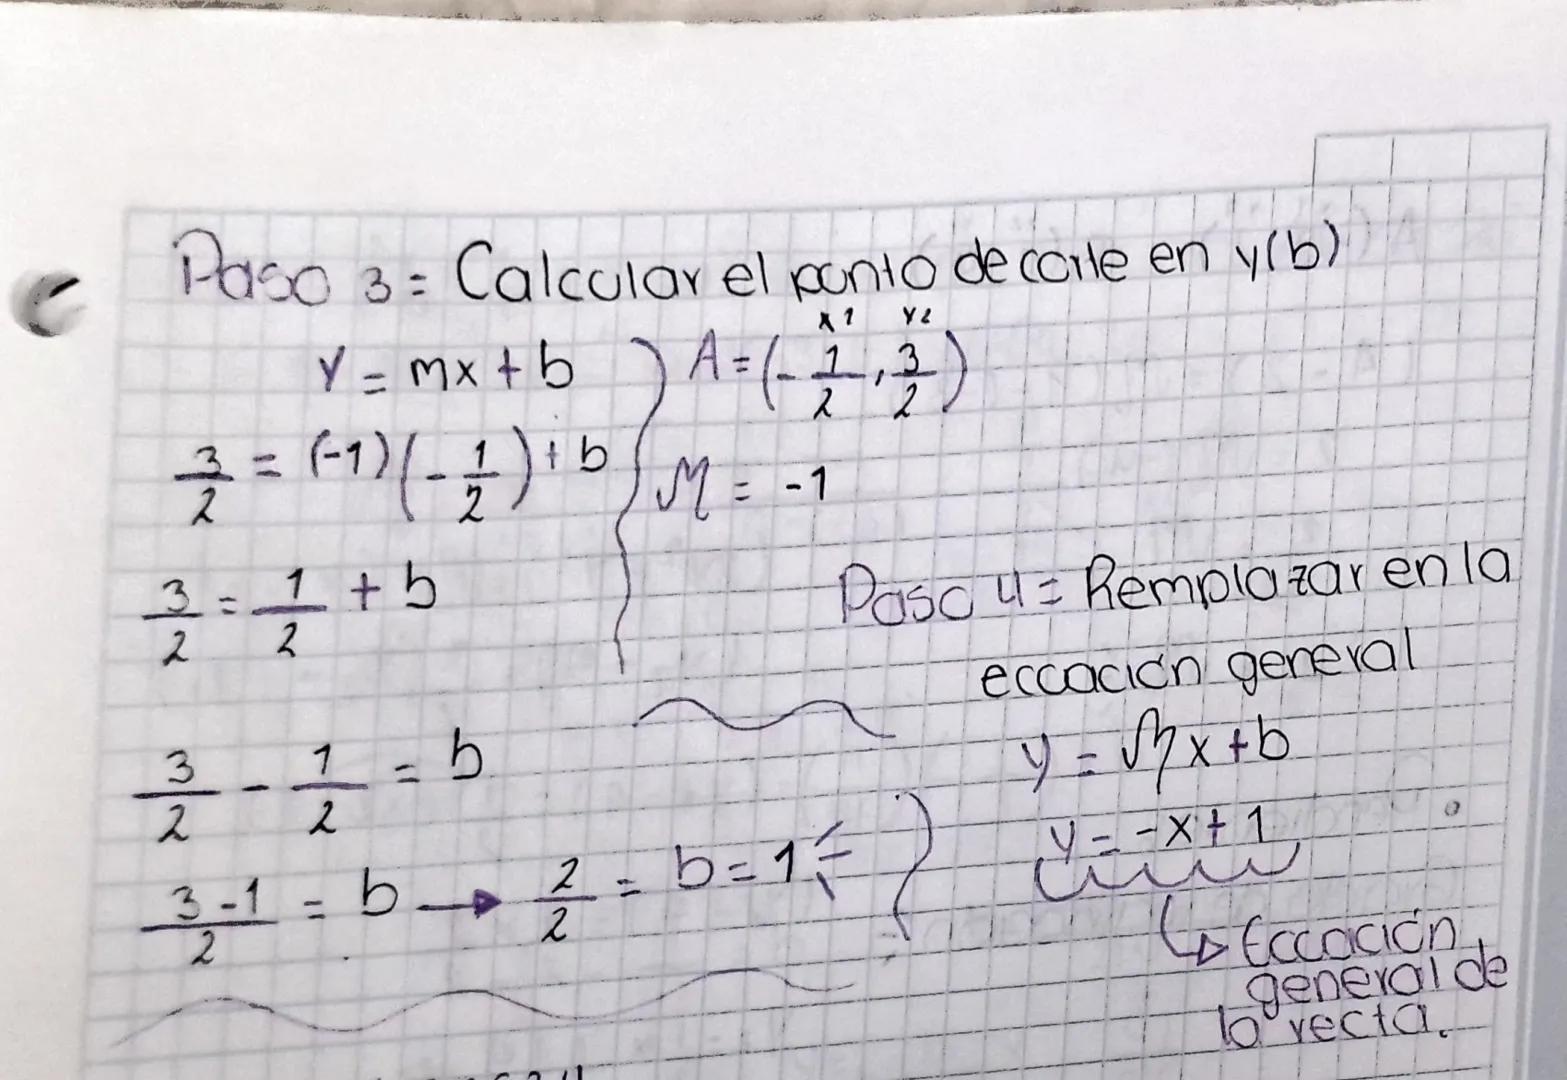 Paso 3 = Calcular el punto de corte en y(b)
y = mx + b
x1 y2
A = (- 1/2 , 3/2)
3/2 = (-1)(- 1/2) + b
M = -1
3/2 = 1/2 + b
3/2 - 1/2 = b
3-1/2 = b → 2/2 = b = 1
Paso 4 = Remplazar en la
eccación general
y = mx + b
y = -x + 1
Eccación
general de
la recta.